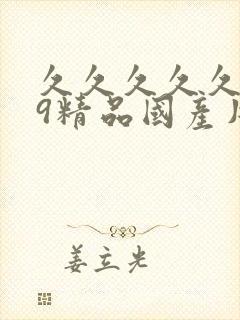 久久久久久
9精品國產
姜立光